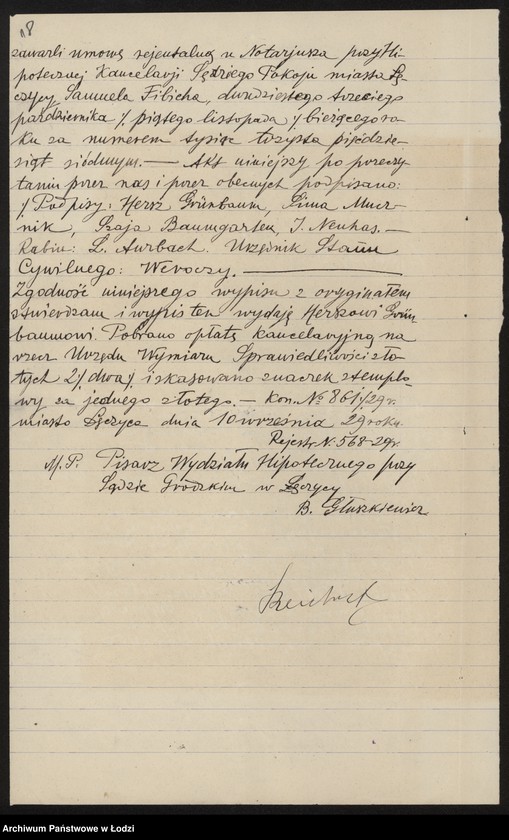 18
zawarli umowę rejentalną u Notarjusza przy Hi-
potecznej Kancelarji Sędziego Pokoju miasta Łę-
czycy Samuela Filicha, dwudziestego trzeciego
października /. piątego listopada /. bieżącego ro-
ku za numerem tysiąc trzysta pięćdzie-
siąt siódmym. — Akt niniejszy po przeczy-
taniu przez nas i przez obecnych podpisano:
/ Podpisy: Hersz Grünbaum, Sima Mucz-
nik, Szaja Baumgarten, J. Neuhas. —
Rabin: L. Aurbach. Urzędnik Stanu
Cywilnego: Weroczy. —
Zgodność niniejszego wypisu z oryginałem
stwierdzam i wypis ten wydaję Herszkowi Grün
baumowi. Pobrano opłatę kancelaryjną na
rzecz Urzędu Wymiaru Sprawiedliwości zło-
tych 2 /. dwa /. i skasowano znaczek stemplo-
wy za jednego złotego. — kon. № 861/29r.
miasto Łęczyca dnia 10 września 29 roku.
Rejestr N. 568-29r.
M. P. Pisarz Wydziału Hipotecznego przy
Sądzie Grodzkim w Łęczycy
B. Głuszkiewicz
Archiwum Państwowe w Łodzi